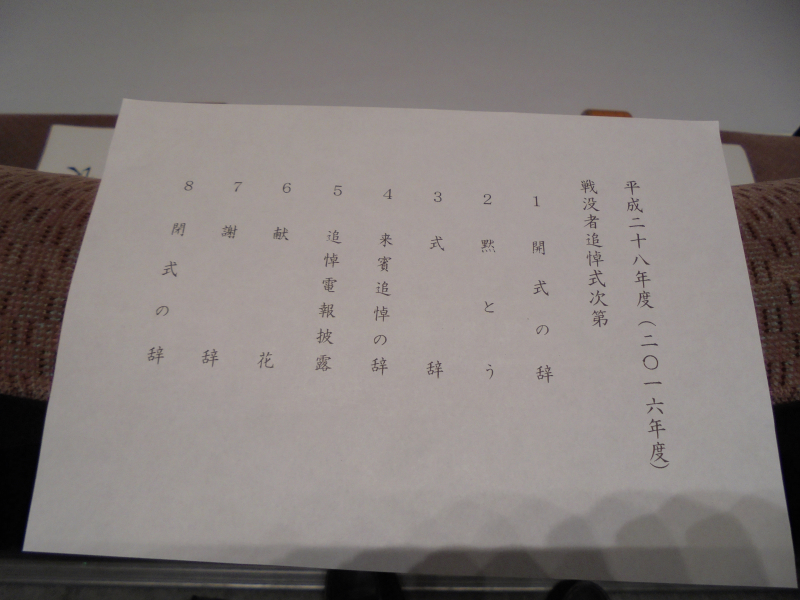 平成二十八年度(二〇一六年度)
戦没者追悼式次第
1 開式の辞
2 黙とう
3 式辞
4 来賓追悼の辞
5 追悼電報披露
6 献花
7 謝辞
8 閉式の辞